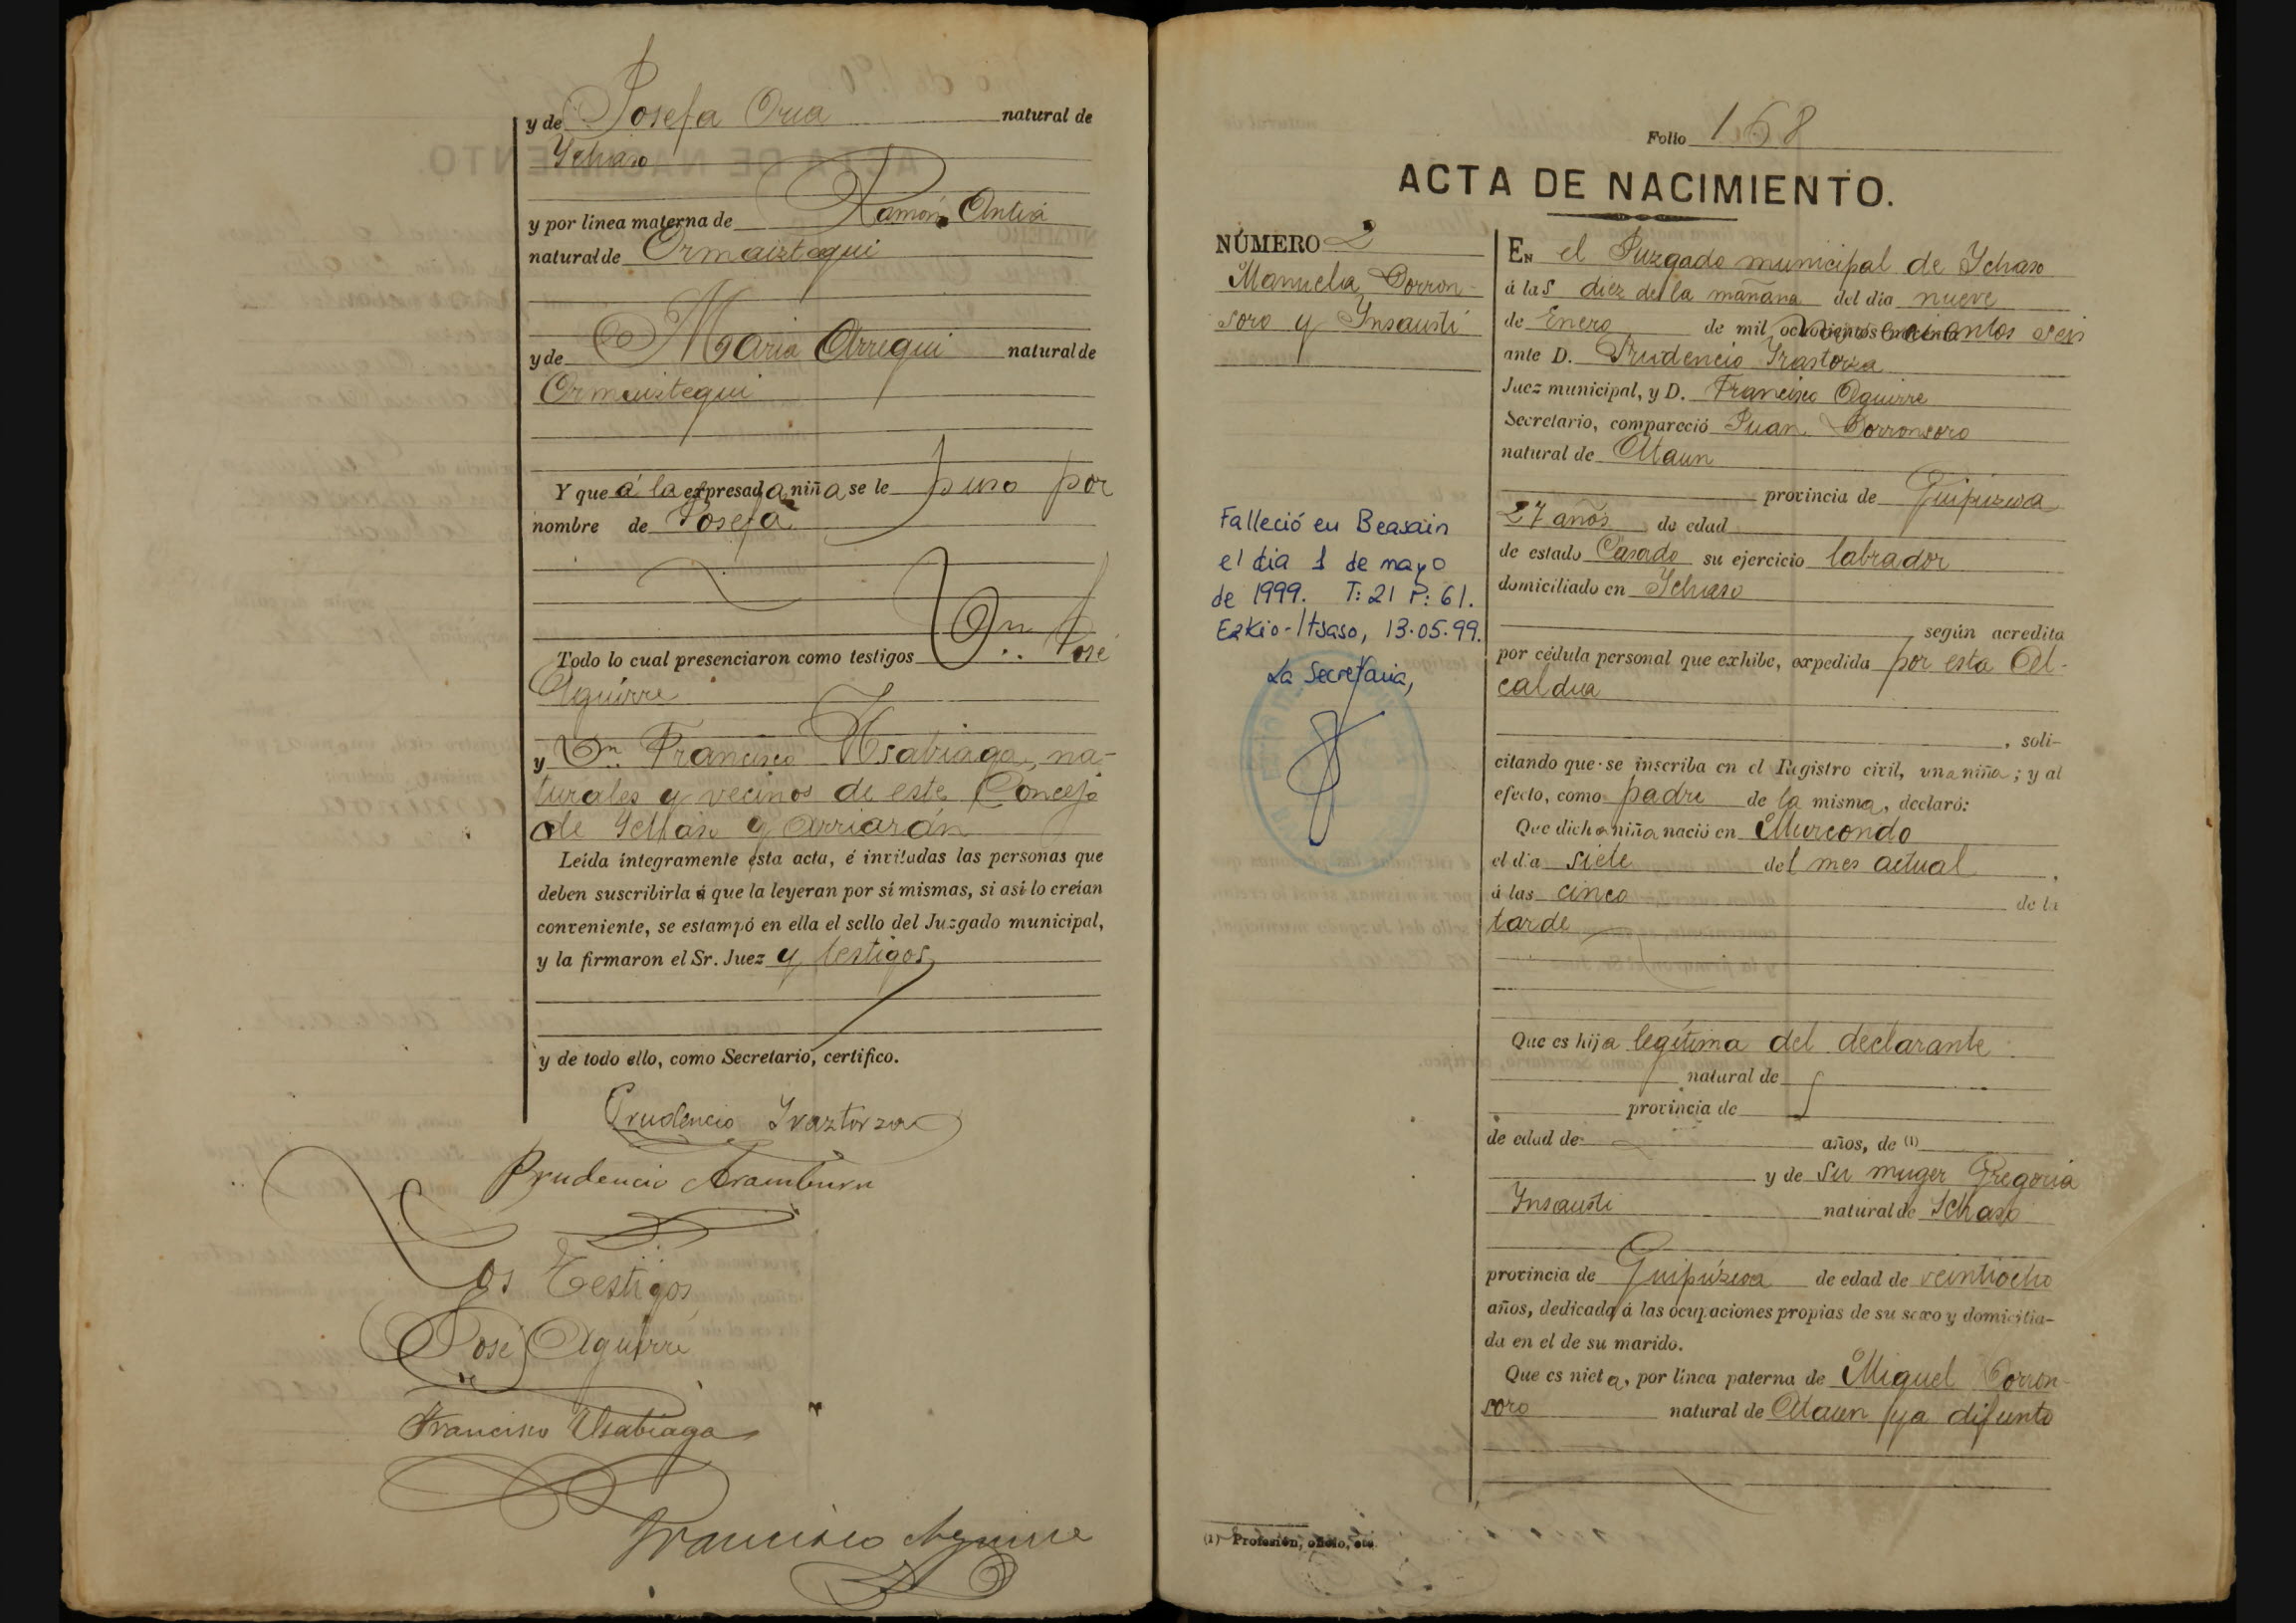 y de Josefa Oria natural de
Ychaso
y por línea materna de Ramón Antia
natural de Ormaiztegui
y de María Arregui natural de
Ormaiztegui
Y que á la expresada niña se le puso por
nombre de Josefa
Todo lo cual presenciaron como testigos Dn. José
Aguirre
y Dn. Francisco Usabiaga, na-
turales y vecinos de este Concejo
de Ychaso y Arriarán
Leída íntegramente esta acta, é invitadas las personas que
deben suscribirla á que la leyeran por sí mismas, si así lo creían
conveniente, se estampó en ella el sello del Juzgado municipal,
y la firmaron el Sr. Juez y testigos
y de todo ello, como Secretario, certifico.
Prudencio Yraztorza
Prudencio Aramburu
Los Testigos
José Aguirre
Francisco Usabiaga
Francisco Aguirre
Folio 168
ACTA DE NACIMIENTO.
NÚMERO 2
Manuela Dorron-
soro y Ynsausti
Falleció en Beasain
el dia 1 de mayo
de 1999. T: 21 P: 61.
Ezkio-Itsaso, 13.05.99.
La Secretaria,
EN el Juzgado municipal de Ychaso
á las diez de la mañana del día nueve
de Enero de mil novecientos seis
ante D. Prudencio Yrastorza
Juez municipal, y D. Francisco Aguirre
Secretario, compareció Juan Dorronsoro
natural de Ataun
provincia de Guipúzcoa
27 años de edad
de estado Casado su ejercicio labrador
domiciliado en Ychaso
según acredita
por cédula personal que exhibe, expedida por esta Al-
caldia
, soli-
citando que se inscriba en el Registro civil, una niña; y al
efecto, como padre de la misma, declaró:
Que dicha niña nació en Murcondo
el día siete del mes actual,
á las cinco de la
tarde
Que es hija legítima del declarante
natural de
provincia de
de edad de años, de (1)
y de su muger Gregoria
Ynsausti natural de Ychaso
provincia de Guipúzcoa de edad de veintiocho
años, dedicada á las ocupaciones propias de su sexo y domicilia-
da en el de su marido.
Que es nieta, por línea paterna de Miguel Dorron-
soro natural de Ataun ya difunto
(1) Profesión, oficio, etc.